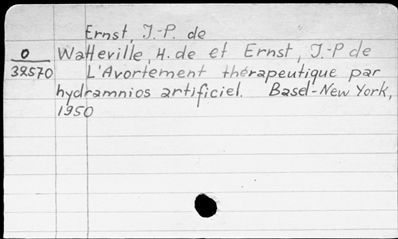 Ernst, J.-P. de
O Watteville, H. de et Ernst, J.-P de
39570 L'Avortement thérapeutique par
hydramnios artificiel. Basel-New York,
1950